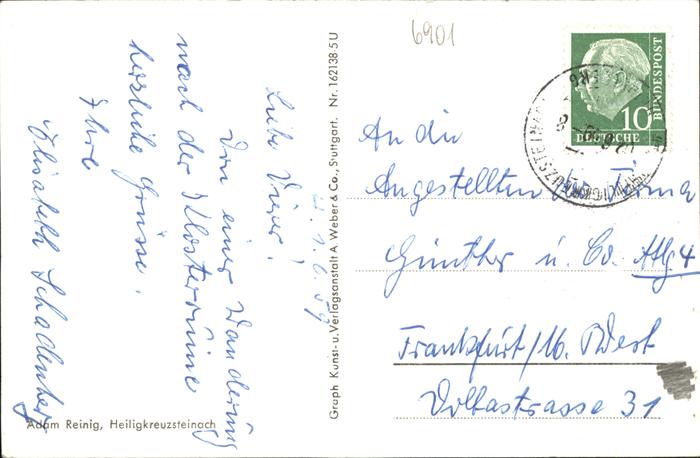 6901
H. 1.6.59
Liebe Vierer!
Von einer Wanderung
nach der Klosterruine
herzliche Grüsse.
Ihre
Elisabeth
Adam Reinig, Heiligkreuzsteinach
Graph Kunst-u. Verlagsanstalt A Weber & Co., Stuttgart. Nr. 162138-5 U
DEUTSCHE BUNDESPOST
10
An die
Angestellten der Firma
Günther u. Co. Abtlg 4
Frankfurt/M. West
Voltastrasse 31